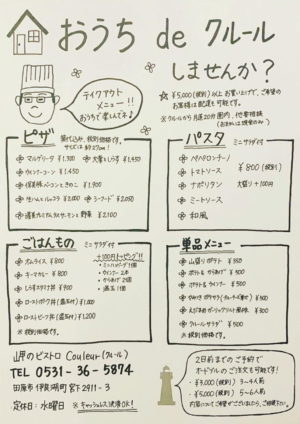 おうち de クルール
しませんか？
テイクアウト
メニュー!!
おうちで楽しんでネ♪
☆ ¥5,000(税別)以上お買い上げで、ご希望の
お客様は配達も可能です。
※クルールから片道20分圏内、
ピザ
税別価格です。
パスタ
ミニサラダ付
マルゲリータ ¥1,300
ウインナーコーン ¥1,450
¥1,900
生ハムとルッコラ ¥2,000
シーフード ¥2,050
野菜 ¥2,100
ペペロンチーノ
トマトソース
ナポリタン
ミートソース
和風
¥800(税別)
大盛り+100円
ごはんもの
ミニサラダ付
オムライス ¥800
キーマカレー ¥800
しらすのりタマ丼 ¥900
ローストポーク丼 ¥1,000
ローストビーフ丼 ¥1,200
※税別価格です。
+100円トッピング!!
・ミニハンバーグ1個
・ウインナー2本
・からあげ2個
・温玉1個
単品メニュー
山盛りポテト ¥350
ポテト&からあげ ¥500
ポテト&ウインナー ¥500
¥500
¥500
クルールサラダ ¥500
※税別価格です。
岬のビストロ Couleur(クルール)
TEL 0531-36-5874
田原市伊良湖町宮下2911-3
定休日:水曜日 ※キャッシュレス決済OK!
2日前までのご予約で
オードブルのご注文も可能です!
・¥3,000(税別) 3〜4人前
・¥5,000(税別) 5〜6人前
内容についてご希望がございましたら、ご相談下さい。